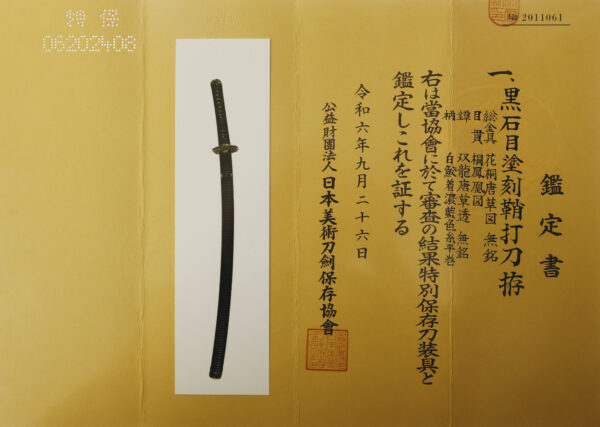 № 2011061
鑑定書
一、黒石目塗刻鞘打刀拵
総金具 花桐唐草図 無銘
目貫 桐鳳凰図
鐔 双龍唐草透 無銘
柄 白鮫着濃藍色糸平巻
右は當協會に於て審査の結果特別保存刀装具と
鑑定しこれを証する
令和六年九月二十六日
公益財團法人日本美術刀劍保存協會
特保
06202408